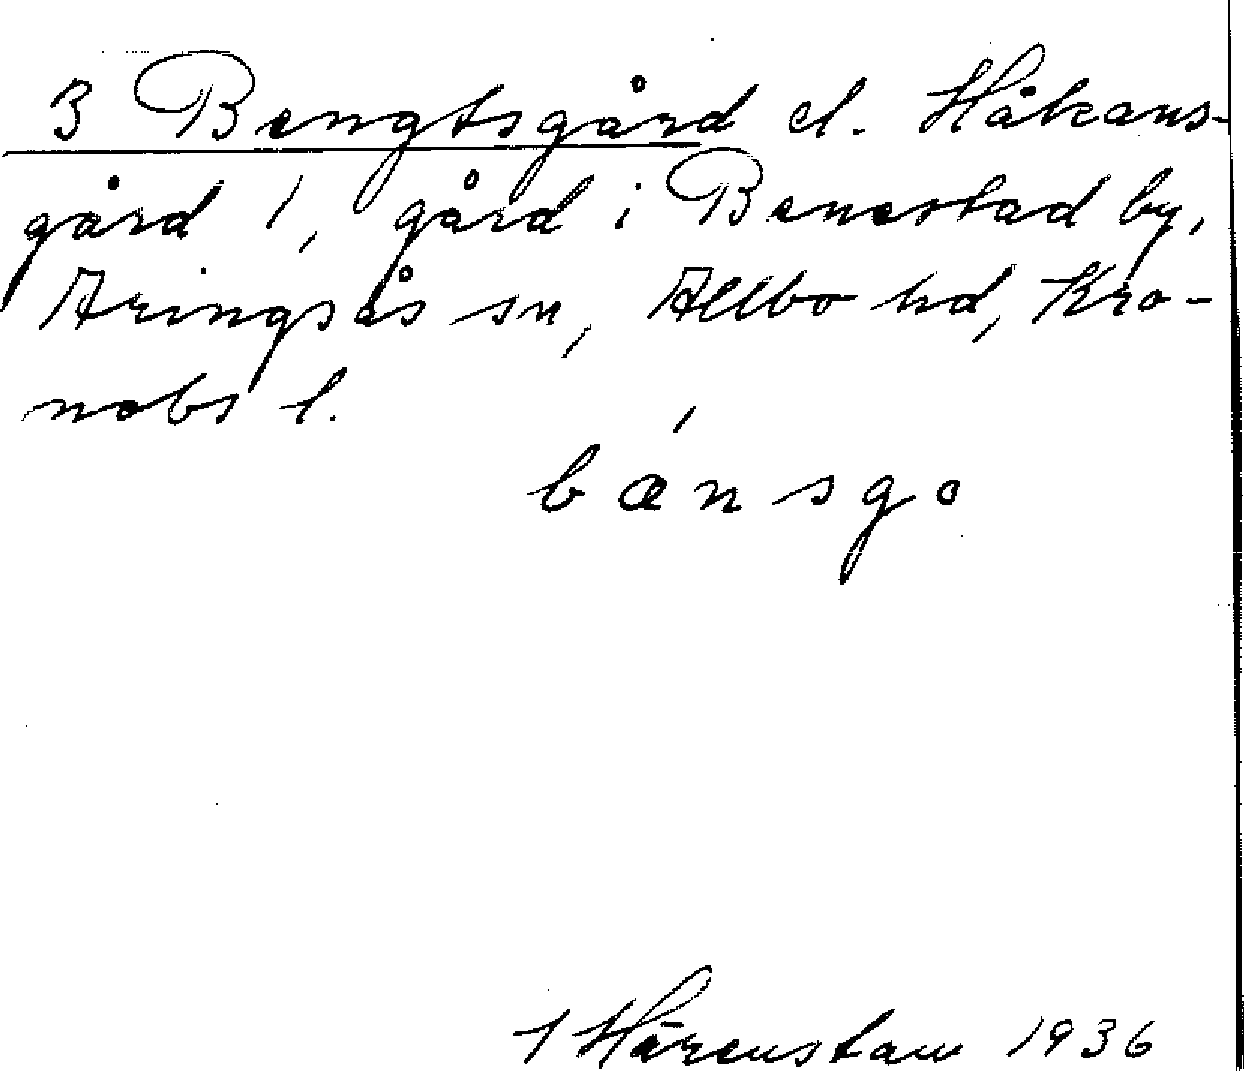 3 Bengtsgård el. Håkans-
gård 1, gård i Benestad by,
Aringsås sn, Allbo hd, Kro-
nobs l.
bænsgo
1 Hårenstam 1936